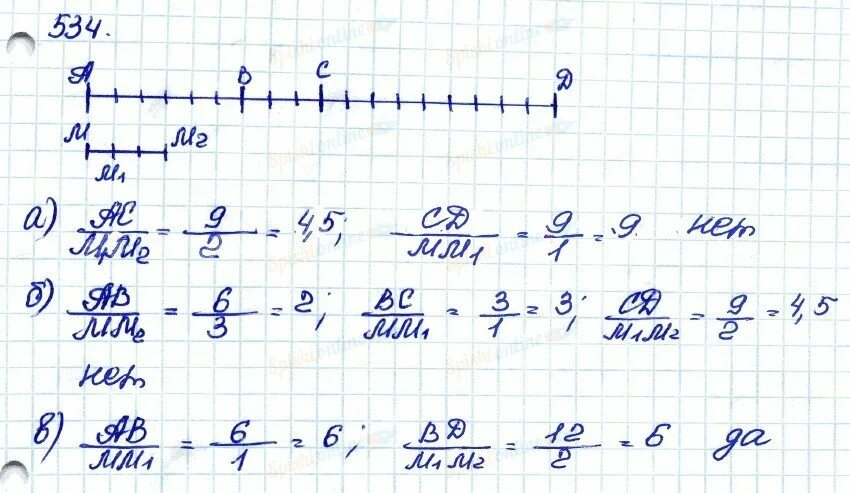 534.
A B C D
M M₂
M₁
а) AC/M₁M₂ = 9/2 = 4,5; CD/MM₁ = 9/1 = 9 нет
б) AB/MM₂ = 6/3 = 2; BC/MM₁ = 3/1 = 3; CD/M₁M₂ = 9/2 = 4,5
нет
в) AB/MM₁ = 6/1 = 6; BD/M₁M₂ = 12/2 = 6 да